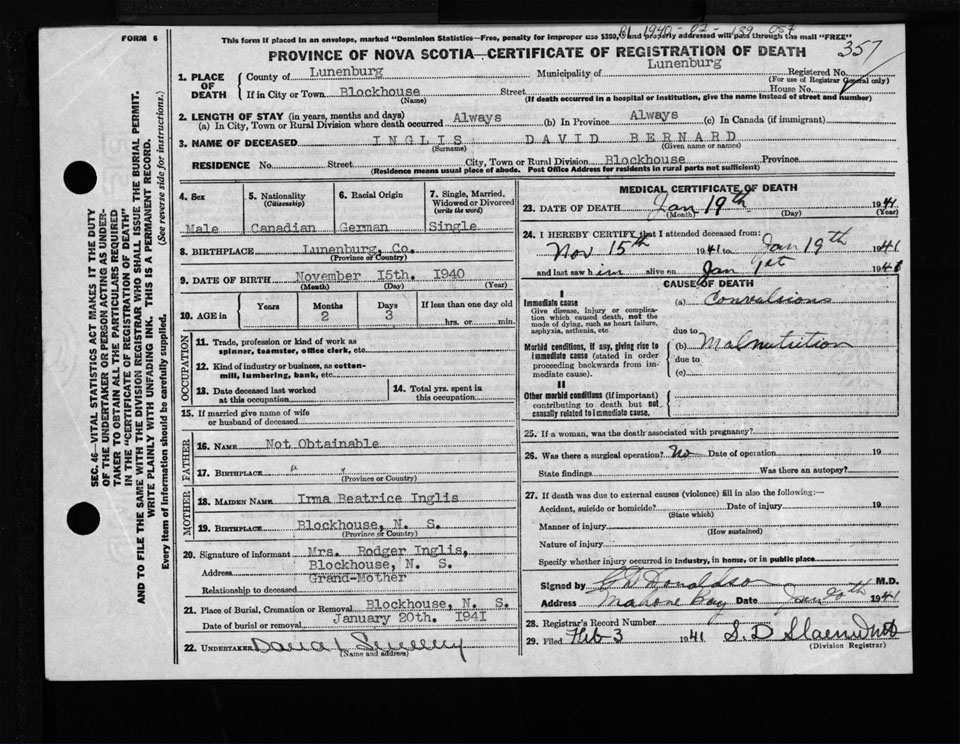 FORM 6
This form if placed in an envelope, marked "Dominion Statistics—Free, penalty for improper use $300," and properly addressed will pass through the mail "FREE"
1940-02-139 057
357
PROVINCE OF NOVA SCOTIA—CERTIFICATE OF REGISTRATION OF DEATH
1. PLACE OF DEATH
County of Lunenburg Municipality of Lunenburg Registered No.
(For use of Registrar General only)
If in City or Town Blockhouse Street House No.
(Name) (If death occurred in a hospital or institution, give the name instead of street and number)
2. LENGTH OF STAY (in years, months and days)
(a) In City, Town or Rural Division where death occurred Always (b) In Province Always (c) In Canada (if immigrant)
3. NAME OF DECEASED INGLIS DAVID BERNARD
(Surname) (Given name or names)
RESIDENCE No. Street City, Town or Rural Division Blockhouse Province
(Residence means usual place of abode. Post Office Address for residents in rural parts not sufficient)
4. Sex Male
5. Nationality (Citizenship) Canadian
6. Racial Origin German
7. Single, Married, Widowed or Divorced (write the word) Single
8. BIRTHPLACE Lunenburg, Co.
(Province or Country)
9. DATE OF BIRTH November 15th. 1940
(Month) (Day) (Year)
10. AGE in Years Months 2 Days 3 If less than one day old hrs. or min.
OCCUPATION
11. Trade, profession or kind of work as spinner, teamster, office clerk, etc.
12. Kind of industry or business, as cotton-mill, lumbering, bank, etc.
13. Date deceased last worked at this occupation
14. Total yrs. spent in this occupation
15. If married give name of wife or husband of deceased
FATHER
16. NAME Not Obtainable
17. BIRTHPLACE " "
(Province or Country)
MOTHER
18. MAIDEN NAME Irma Beatrice Inglis
19. BIRTHPLACE Blockhouse, N. S.
(Province or Country)
20. Signature of informant Mrs. Rodger Inglis,
Address Blockhouse, N. S.
Relationship to deceased Grand-Mother
21. Place of Burial, Cremation or Removal Blockhouse, N. S.
Date of burial or removal January 20th. 1941
22. UNDERTAKER
(Name and address)
MEDICAL CERTIFICATE OF DEATH
23. DATE OF DEATH Jan 19th 1941
(Month) (Day) (Year)
24. I HEREBY CERTIFY that I attended deceased from:
Nov 15th 1941 to Jan 19th 1941
and last saw him alive on Jan 1st 1941
CAUSE OF DEATH
I
Immediate cause
Give disease, injury or complication which caused death, not the mode of dying, such as heart failure, asphyxia, asthenia, etc.
(a) Convulsions
due to
Morbid conditions, if any, giving rise to immediate cause (stated in order proceeding backwards from immediate cause).
(b) Malnutrition
due to
(c)
II
Other morbid conditions (if important) contributing to death but not causally related to immediate cause.
25. If a woman, was the death associated with pregnancy?
26. Was there a surgical operation? No Date of operation 19
State findings Was there an autopsy?
27. If death was due to external causes (violence) fill in also the following:—
Accident, suicide or homicide? Date of injury 19
(State which)
Manner of injury
(How sustained)
Nature of injury
Specify whether injury occurred in industry, in home, or in public place
Signed by Donaldson M.D.
Address Mahone Bay Date Jan 1941
28. Registrar's Record Number
29. Filed Feb 3 1941 S. D
(Division Registrar)
SEC. 46—VITAL STATISTICS ACT MAKES IT THE DUTY
OF THE UNDERTAKER OR PERSON ACTING AS UNDER-
TAKER TO OBTAIN ALL THE PARTICULARS REQUIRED
IN THE "CERTIFICATE OF REGISTRATION OF DEATH"
AND TO FILE THE SAME WITH THE DIVISION REGISTRAR WHO SHALL ISSUE THE BURIAL PERMIT.
WRITE PLAINLY WITH UNFADING INK. THIS IS A PERMANENT RECORD.
Every item of Information should be carefully supplied. (See reverse side for instructions.)